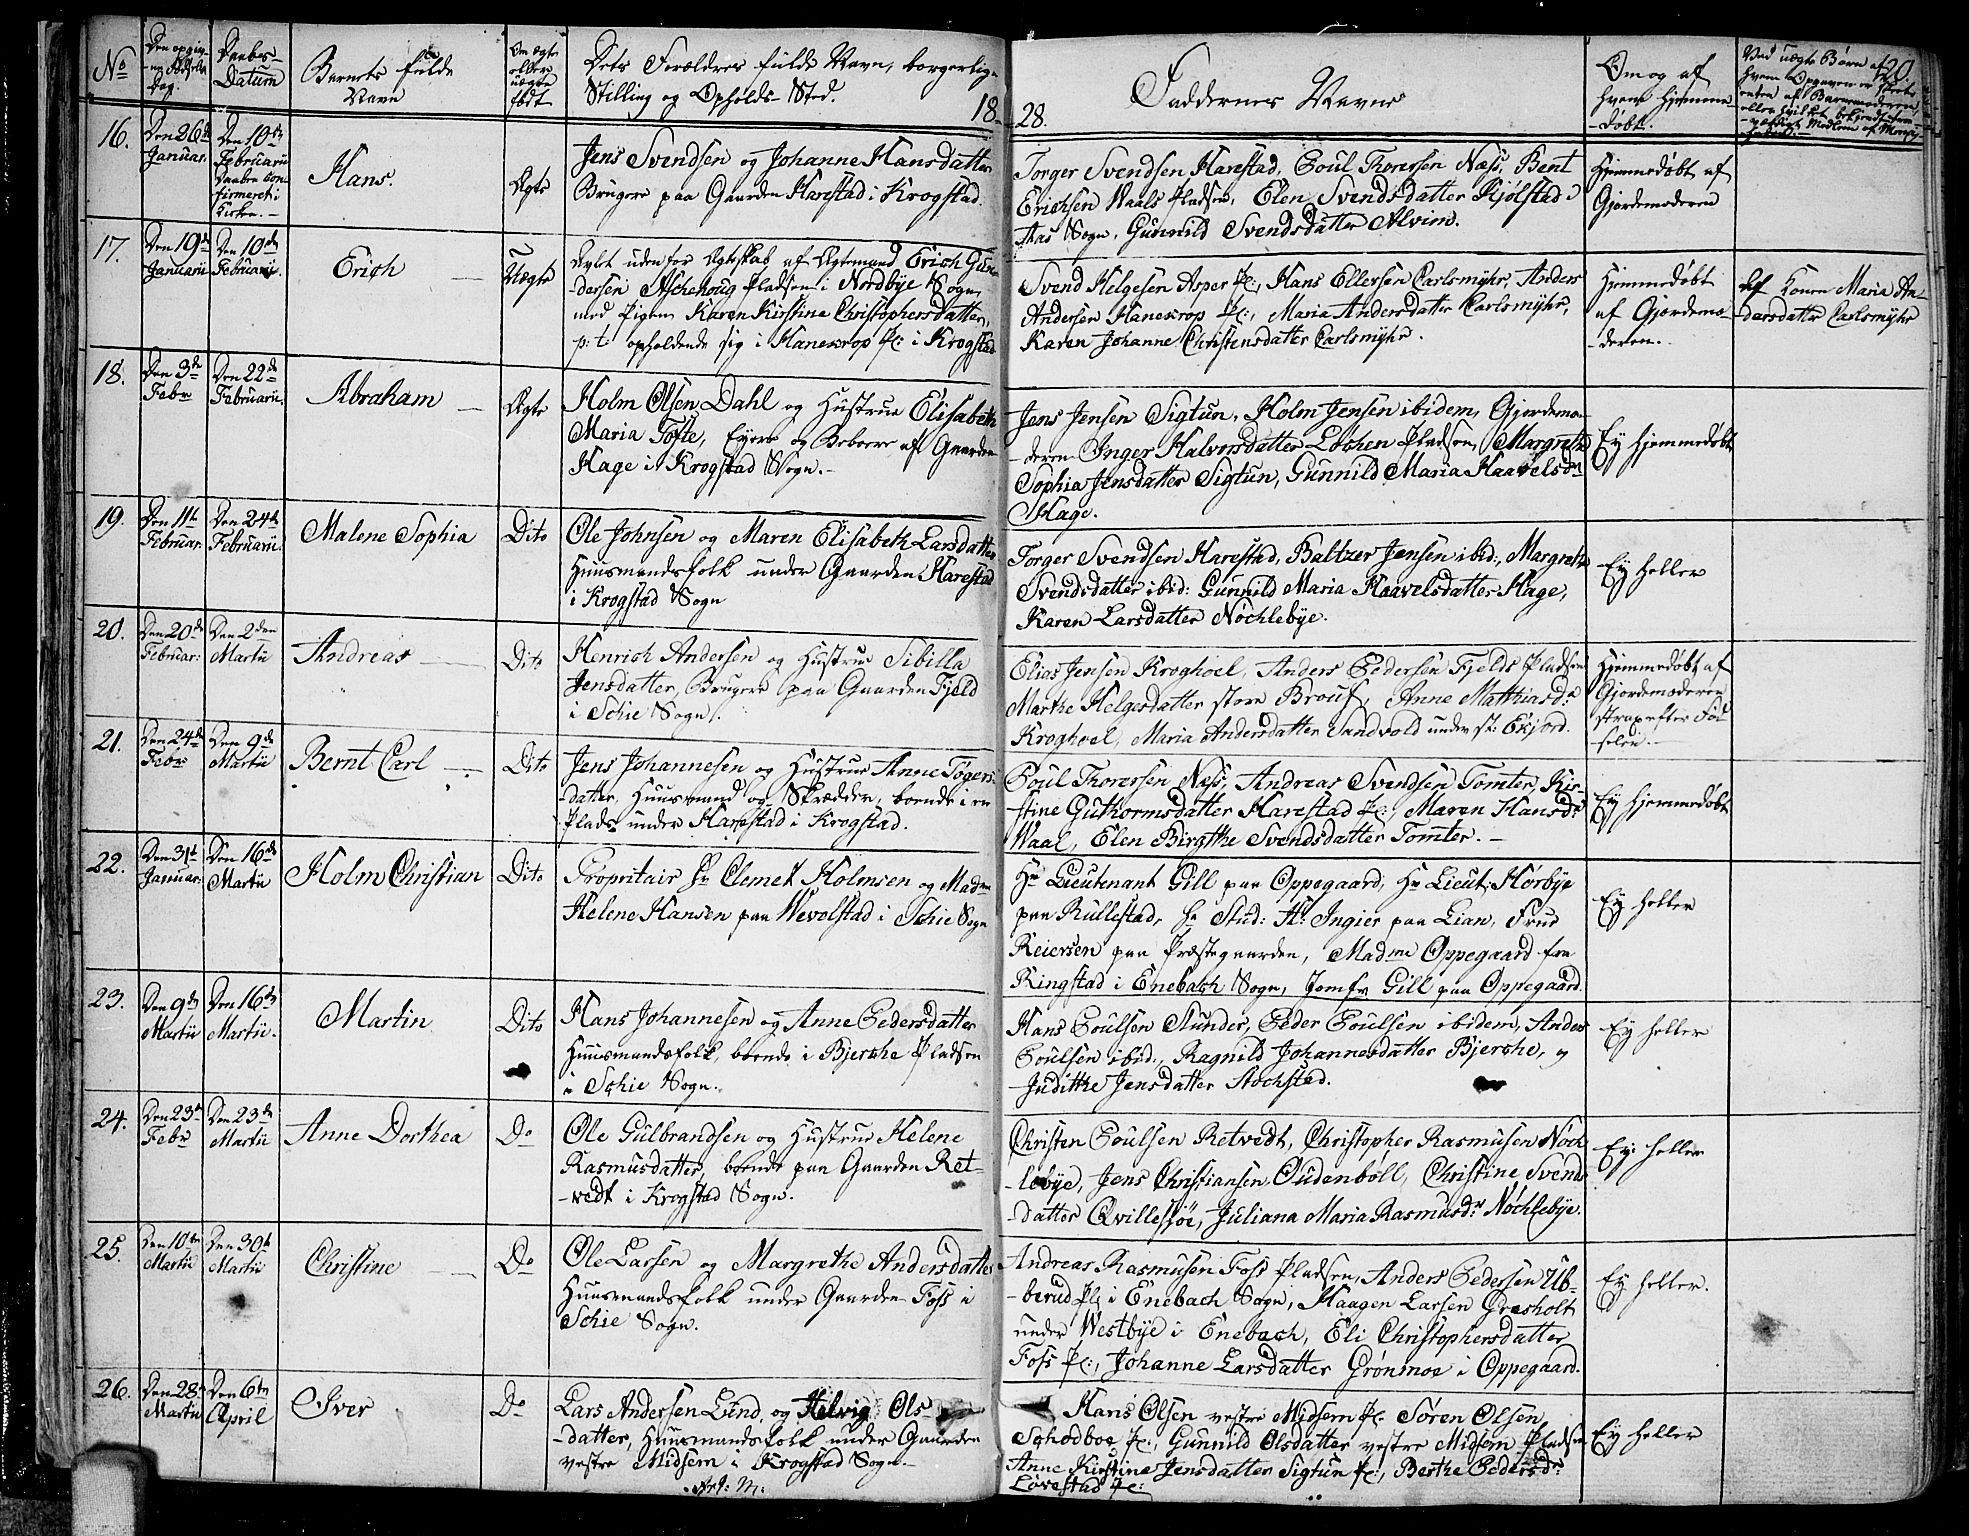 No
Den opgivne Fødsels Dag.
Daabs-Datum
Barnets fulde Navn
Om ægte eller uægte født
Dets Forældres fulde Navn, borgerlige
Stilling og Opholds-Sted.
18
28.
Faddernes Navne
Om og af
hvem hjemme-
-døbt.
20.
16.
Den 26de
Januar.
Den 10de
Februarii
Daaben Con-
firmeret i
Kirken.-
Hans.
Ægte
Jens Svendsen og Johanne Hansdatter
Brugere paa Gaarden Harestad i Krogstad.
Torger Svendsen Harestad, Poul Thorersen Næss, Bent
Erichsen Waals Pladsen, Elen Svendsdatter Kjølstad i
Aas Sogn, Gunnild Svendsdatter Alvim.
Hjemmedøbt af
Gjordemoderen
17.
Den 19de
Januarii
Den 10de
Februarii.
Erich
Uægte
Avlet uden for Ægteskab af Ægtemand Erich Gun-
dersen Aschehoug Pladsen i Nordbye Sogn,
med Pigen Karen Kirstine Christophersdatter,
p: t: opholdende sig i Hanekrop Pl: i Krogstad
Svend Helgesen Asper Pl:, Hans Ellersen Carlsmyhr, Anders
Andersen Hanekrop Pl:, Maria Andersdatter Carlsmyhr,
Karen Johanne Christensdatter Carlsmyhr.
Hjemmedøbt
af Gjordemo-
-deren.
Af Konen Maria An-
dersdatter Carlsmyhr
18.
Den 3de
Febr
Den 22de
Februarii.
Abraham
Ægte
Holm Olsen Dahl og Hustrue Elisabeth
Maria Tofte, Eyere og Beboere af Gaarden
Hage i Krogstad Sogn.-
Jens Jensen Sigtun, Holm Jensen ibidem, Gjordemo-
-deren Inger Halvorsdatter Løchen Pladsen, Margrethe
Sophia Jensdatter Sigtun, Gunnild Maria Haavelsdr
Hage.
Ey hjemmedøbt
19.
Den 11te
Februar.
Den 24de
Februarii.
Malene Sophia
Dito
Ole Johnsen og Maren Elisabeth Larsdatter
Huusmandsfolk under Gaarden Harestad
i Krogstad Sogn
Torger Svendsen Harestad, Baltzer Jensen ibid:, Margrethe
Svendsdatter ibid: Gunnild Maria Haavelsdatter Hage,
Karen Larsdatter Nøchlebye.
Ey heller
20.
Den 20de
Februar:
Den 2den
Martii
Andreas
Dito
Henrich Andersen og Hustrue Sibilla
Jensdatter, Brugere paa Gaarden Fjeld
i Schie Sogn.
Elias Jensen Kroghoel, Anders Pedersen Fjelds Pladsen
Marthe Helgesdatter store Brouf, Anne Mathiasdr
Kroghoel, Maria Andersdatter Sandvold under st: Ekjord.
Hjemmedøbt af
Gjordemoderen
strax efter Fød-
-selen.-
21.
Den 24de
Febr
Den 9de
Martii
Bernt Carl
Dito
Jens Johannesen og Hustrue Anne Togers-
-datter, Huusmand og Skrædder, boende i en
Plads under Harestad i Krogstad.
Poul Thorersen Næss, Andreas Svendsen Tomter, Kir-
stine Guthormsdatter Harestad Pl:, Maren Hansdr
Waal, Elen Birgithe Svendsdatter Tomter.-
Ey hjemmedøbt
22.
Den 31te
Januar:
Den 16de
Martii
Holm Christian
Dito
Propritair Hr Clemet Holmsen og Madme
Helene Hansen paa Wevolstad i Schie Sogn
Hr Lieutenant Gill paa Oppegaard, Hr Lieut: Hørbye
paa Rullestad, Hr Stud: H: Ingier paa Lian, Frue
Reiersen paa Præstegaarden, Madme Oppegaard fra
Ringstad i Enebach Sogn, Jomfr Gill paa Oppegaard.
Ey heller
23.
Den 9de
Martii
Den 16de
Martii.
Martin
Dito
Hans Johannesen og Anne Pedersdatter
Huusmandsfolk, boende i Bjerche Pladsen
i Schie Sogn.
Hans Poulsen Aunder, Peder Poulsen ibidem, Anders
Poulsen ibid:, Ragnild Johannesdatter Bjerche, og
Judithe Jensdatter Stochstad.
Ey heller
24.
Den 23de
Febr
Den 23de
Martii
Anne Dorthea
Do
Ole Gulbrandsen og Hustrue Helene
Rasmusdatter, boende paa Gaarden Ret-
-vedt i Krogstad Sogn.
Christen Poulsen Retvedt, Christopher Rasmusen Nøch-
-lebye, Jens Christiansen Oudenbøll, Christine Svends-
-datter Qvillesjøe, Juliana Maria Rasmusdr Nøchlebye.
Ey heller
25.
Den 10de
Martii
Den 30te
Martii
Christine
Do
Ole Larsen og Margrethe Andersdatter
Huusmandsfolk under Gaarden Foss i
Schie Sogn.
Andreas Rasmusen Foss Pladsen, Anders Pedersen Ub-
-berud Pl i Enebach Sogn, Haagen Larsen Gresholt
under Westbye i Enebach, Eli Christophersdatter
Foss Pl:, Johanne Larsdatter Grønmoe i Oppegaard.
Ey heller.
26.
Den 28de
Martii
Den 6te
April
Iver
Do
Lars Andersen Lund, og Helvig Ols-
-datter, Huusmandsfolk under Gaarden
vestre Midsem i Krogstad Sogn.-
Hans Olsen vestre Midsem Pl: Søren Olsen
Schodboe Pl:, Gunnild Olsdatter vestre Midsem Pladsen
Anne Kirstine Jensdatter Sigtun Pl:, Berthe Pedersdr
Løvestad Pl:
Ey heller